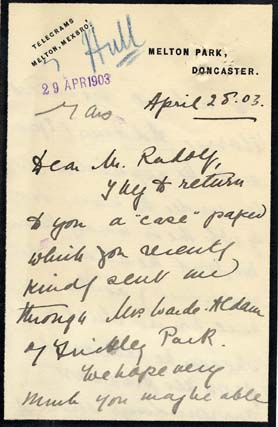 TELEGRAMS
MELTON, MEXBRO'
Hull
MELTON PARK,
DONCASTER.
29 APR 1903
April 28. 03.
Dear Mr. Rudolf,
I beg to return
to you a "case" paper
which you recently
kindly sent me
through Mrs Warde-Aldam
of Frickley Park.
We hope very
much you may be able